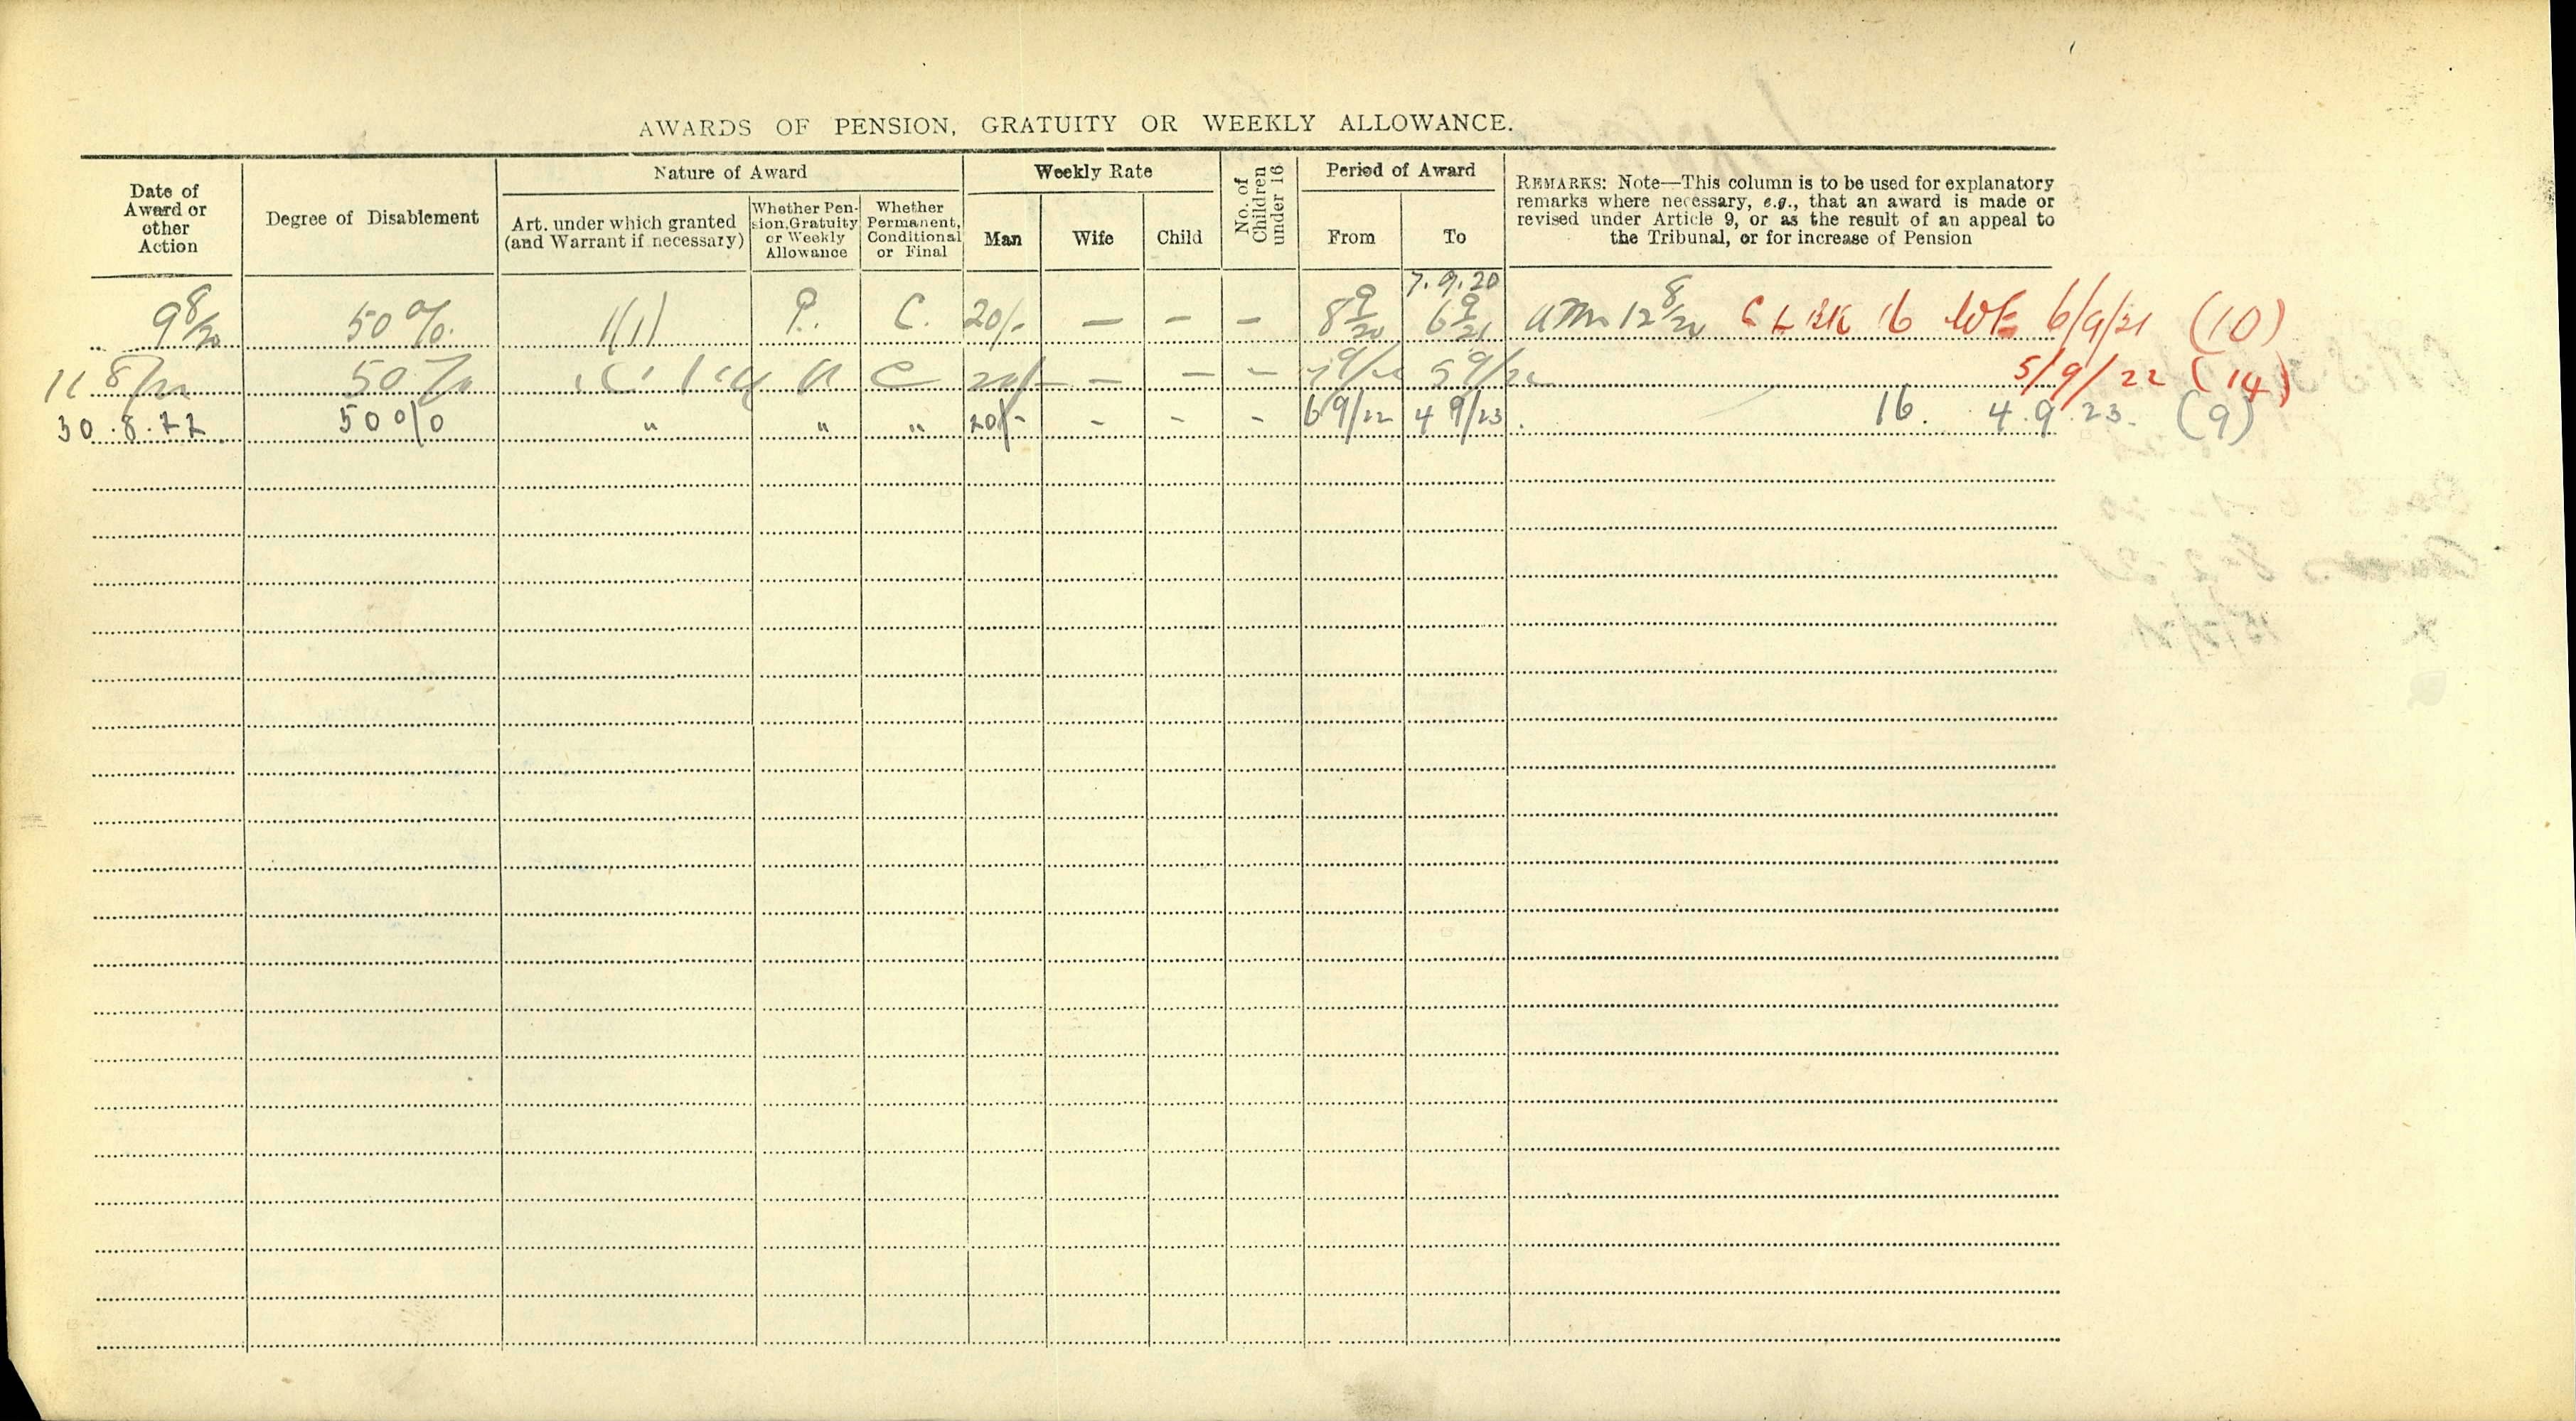 AWARDS OF PENSION, GRATUITY OR WEEKLY ALLOWANCE.
Date of Award or other Action
Degree of Disablement
Nature of Award
Art. under which granted (and Warrant if necessary)
Whether Pension, Gratuity or Weekly Allowance
Whether Permanent, Conditional or Final
Weekly Rate
Man
Wife
Child
No. of Children under 16
Period of Award
From
To
REMARKS: Note—This column is to be used for explanatory
remarks where necessary, e.g., that an award is made or
revised under Article 9, or as the result of an appeal to
the Tribunal, or for increase of Pension
7.9.20
9 8/20 50%. 1(1) P. C. 20/- — — — 8 9/20 6 9/21 12 8/20 16 6/9/21 (10)
11 8/ 50% C 20/- — — — 5 9/22 5/9/22 (14)
30.8.22 50% " " " 20/- - - - 6 9/22 4 9/23 16. 4.9.23. (9)